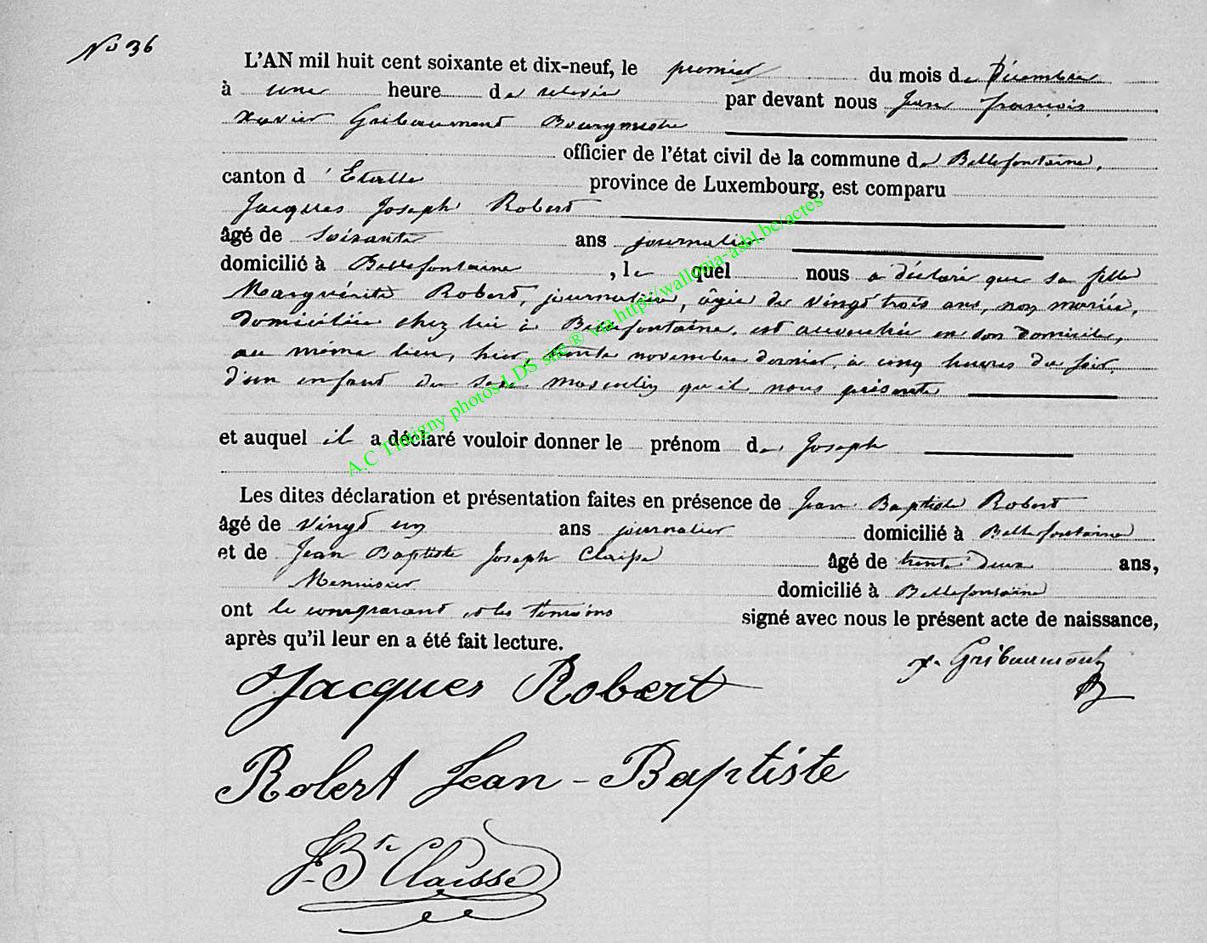 No 36
L'AN mil huit cent soixante et dix-neuf, le premier du mois de Décembre
à une heure de relevée par devant nous Jean François
Xavier Gribaumont Bourgmestre
officier de l'état civil de la commune de Bellefontaine,
canton d'Etalle province de Luxembourg, est comparu
Jacques Joseph Robert
âgé de soixante ans journalier
domicilié à Bellefontaine, le quel nous a déclaré que sa fille
Marguérite Robert, journalière, âgée de vingt trois ans, non mariée,
domiciliée chez lui à Bellefontaine, est accouchée en son domicile,
au même lieu, hier, trente novembre dernier, à cinq heures du soir,
d'un enfant du sexe masculin qu'il nous présente
et auquel il a déclaré vouloir donner le prénom de Joseph
Les dites déclaration et présentation faites en présence de Jean Baptiste Robert
âgé de vingt un ans journalier domicilié à Bellefontaine
et de Jean Baptiste Joseph Claisse âgé de trente deux ans,
Menuisier domicilié à Bellefontaine
ont le comparant et les témoins signé avec nous le présent acte de naissance,
après qu'il leur en a été fait lecture.
x. Gribaumont
Jacques Robert
Robert Jean-Baptiste
J-Bte Claisse
A.C Tintigny photos LDS sur ® via http://wallonia-asbl.be/actes